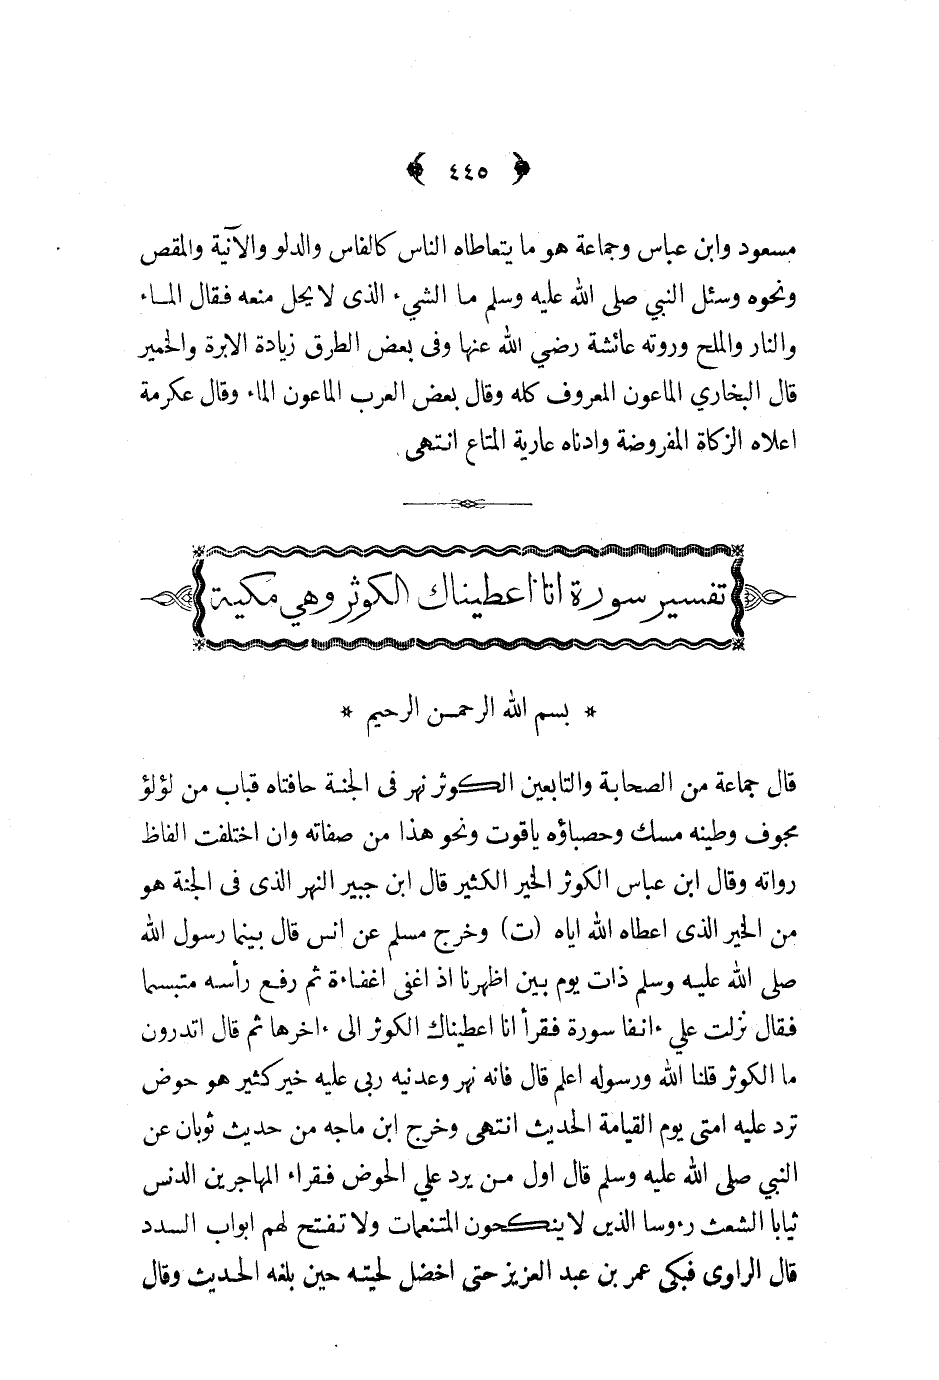 ﴿ ٤٤٥ ﴾
مسعود وابن عباس وجماعة هو ما يتعاطاه الناس كالفاس والدلو والآنية والمقص
ونحوه وسئل النبي صلى الله عليه وسلم ما الشيء الذى لا يحل منعه فقال الماء
والنار والملح وروته عائشة رضي الله عنها وفى بعض الطرق زيادة الابرة والخمير
قال البخاري الماعون المعروف كله وقال بعض العرب الماعون الماء وقال عكرمة
اعلاه الزكاة المفروضة وادناه عارية المتاع انتهى
تفسير سورة انا اعطيناك الكوثر وهي مكية
* بسم الله الرحمن الرحيم *
قال جماعة من الصحابة والتابعين الكوثر نهر فى الجنة حافتاه قباب من لؤلؤ
مجوف وطينه مسك وحصباؤه ياقوت ونحو هذا من صفاته وان اختلفت الفاظ
رواته وقال ابن عباس الكوثر الخير الكثير قال ابن جبير النهر الذى فى الجنة هو
من الخير الذى اعطاه الله اياه (ت) وخرج مسلم عن انس قال بينما رسول الله
صلى الله عليه وسلم ذات يوم بين اظهرنا اذ اغفى اغفاءة ثم رفع رأسه متبسما
فقال نزلت علي ءانفا سورة فقرأ انا اعطيناك الكوثر الى ءاخرها ثم قال اتدرون
ما الكوثر قلنا الله ورسوله اعلم قال فانه نهر وعدنيه ربى عليه خير كثير هو حوض
ترد عليه امتى يوم القيامة الحديث انتهى وخرج ابن ماجه من حديث ثوبان عن
النبي صلى الله عليه وسلم قال اول من يرد علي الحوض فقراء المهاجرين الدنس
ثيابا الشعث رءوسا الذين لا ينكحون المتنعمات ولا تفتح لهم ابواب السدد
قال الراوى فبكى عمر بن عبد العزيز حتى اخضل لحيته حين بلغه الحديث وقال